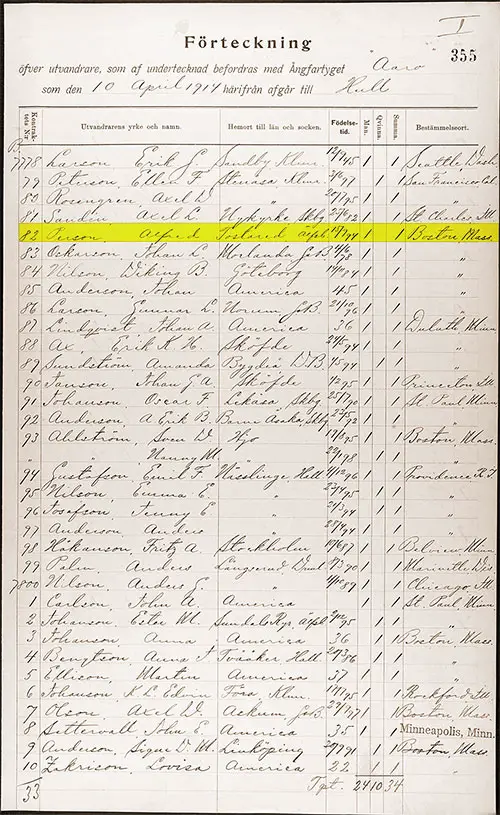 I
355
Förteckning
öfver utvandrare, som af undertecknad befordras med Ångfartyget "Aaro"
som den 10 April 1914 härifrån afgår till Hull
Kontraktets N:r Utvandrarens yrke och namn. Hemort till län och socken. Födelsetid. Man. Qvinna. Summa. Bestämmelseort.
7778 Larson, Erik G. Sandby Klmr. 45 1 1 Seattle Wash
79 Peterson, Ellen F. Stenasa Klmr. 97 1 1 San Francisco Cal.
80 Rosengren, Axel D. " 95 1 1 "
81 Sandin Axel L. Nykyrke Skbg 92 1 1 St Charles Ill.
82 Person, Alfred Tostared Älfsb 94 1 1 Boston Mass.
83 Oskarson, Johan L. Morlanda G&B. 98 1 1 "
84 Nilson, Viking B. Göteborg 94 1 1 "
85 Anderson, Johan America 45 1 1 "
86 Larson, Gunnar L. Norum G&B. 96 1 1 "
87 Lindqvist, Johan A. America 36 1 1 Duluth Minn
88 Ax, Erik K. H. Sköfde 94 1 1 "
89 Sundström, Amanda Bygdeå W.B. 94 1 1 "
90 Janson, Johan G. A. Sköfde 95 1 1 Princeton Ill
91 Johanson, Oscar F. Lekåsa Skbg 90 1 1 St. Paul Minn
92 Anderson, A. Erik B. Barne Åsaka, Skbg 92 1 1 "
93 Ahlström, Sven D. Hjo 95 1 1 Boston Mass.
" " Nanny M. " 98 1 1 "
94 Gustafson, Emil F. Nösslinge Hall 96 1 1 Providence R.I.
95 Nilson, Emma E. " 95 1 1 "
96 Josefson, Jenny E. " 94 1 1 "
97 Anderson Anders " 94 1 1 "
98 Håkanson, Fritz A. Stockholm 87 1 1 Minn.
99 Palm Anders Långserud Vrml 90 1 1 Marinette Wis.
7800 Nilson, Anders G. " 89 1 1 Chicago Ill
1 Carlson, John A. America 1 1 St. Paul, Minn
2 Johanson, Ester M. 95 1 1 "
3 Johanson, Anna America 36 1 1 Boston Mass.
4 Bengtson, Anna S. Tvååker Hall. 86 1 1 "
5 Ellison, Martin America 37 1 1 "
6 Johanson, K. L. Edvin Föra, Klmr. 95 1 1 Rockford Ill
7 Olson, Axel W. Askum G&B. 97 1 1 Boston, Mass.
8 Settervall, John E. America 35 1 1 Minneapolis, Minn.
9 Anderson, Signe D. M. Linköping 91 1 1 Boston Mass.
10 Zakrison, Lovisa America 22 1 1 "
33 Tpt. 24 10 34